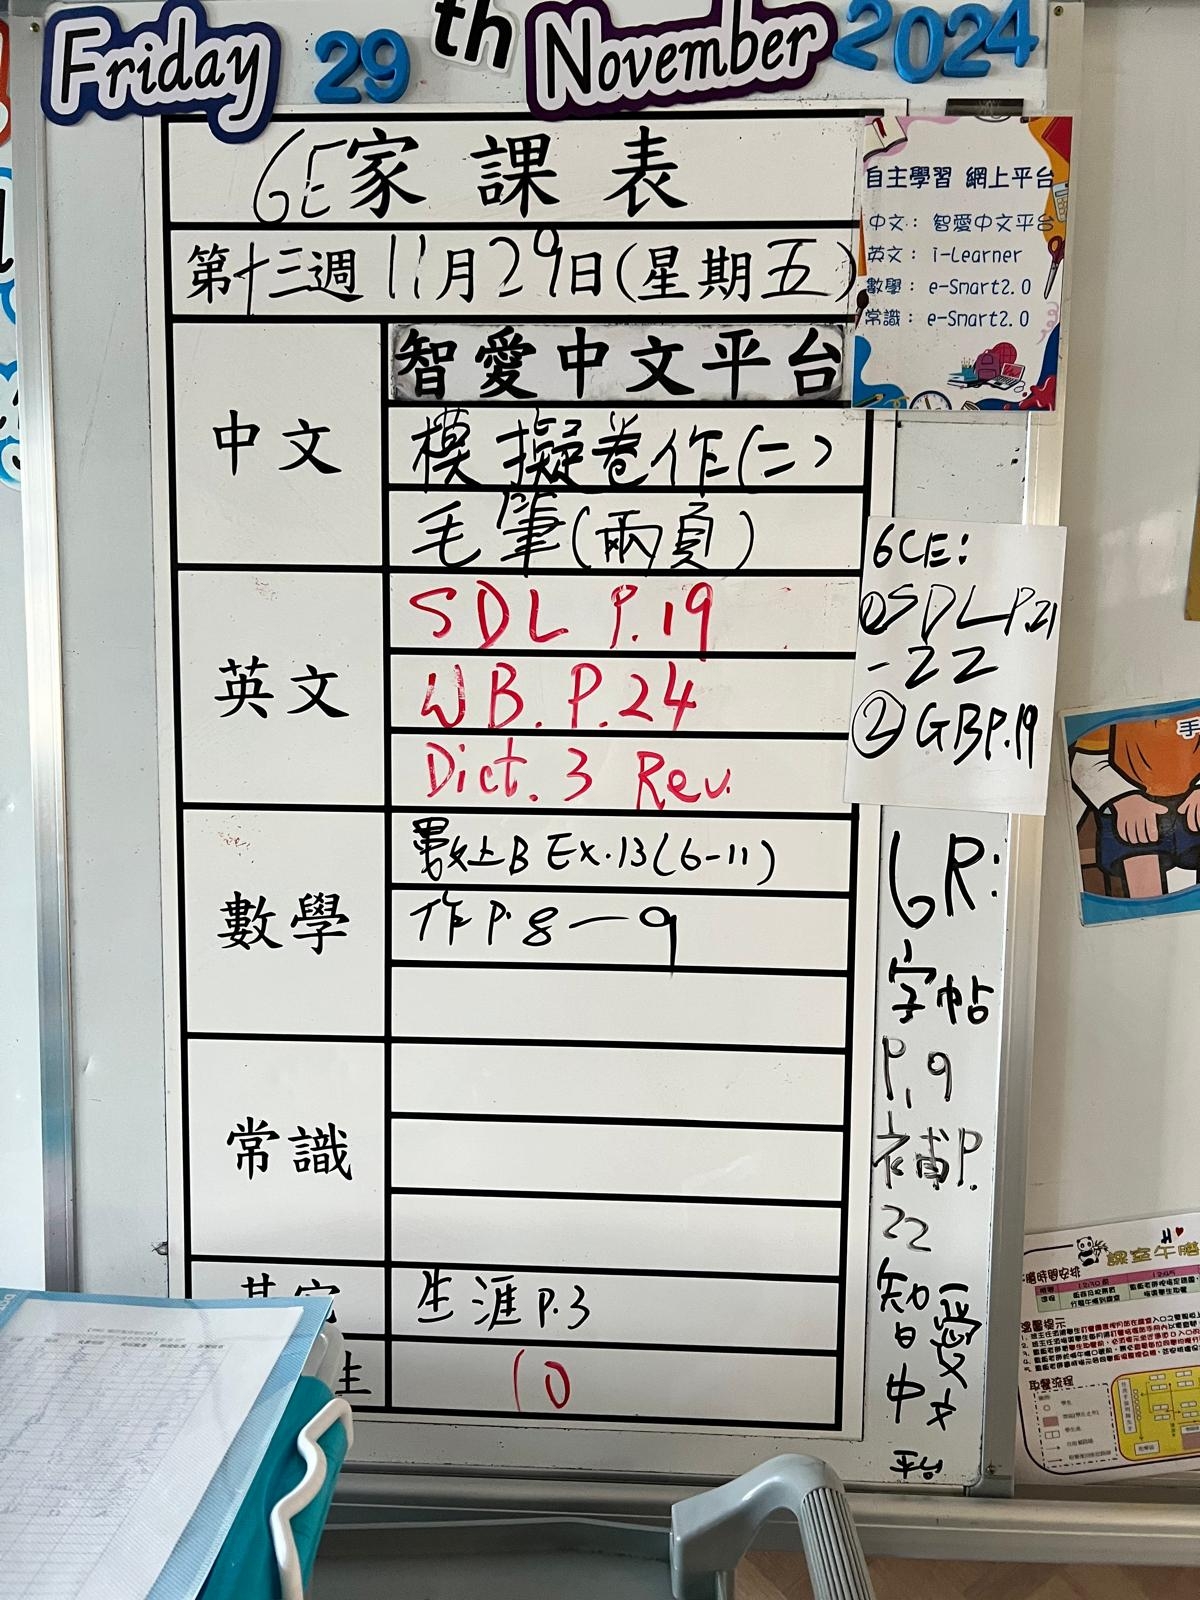 Friday 29th November 2024
6E家課表
第十三週 11月29日(星期五)
中文
智愛中文平台
模擬卷作(二)
毛筆(兩頁)
英文
SDL P.19
WB. P.24
Dict. 3 Rev.
數學
數上B Ex.13(6-11)
作P.8—9
常識
其它
生涯P.3
生
10
自主學習 網上平台
中文： 智愛中文平台
英文： i-Learner
數學： e-Smart2.0
常識： e-Smart2.0
6CE:
①SDL P.21
-22
②GBP.19
6R:
字帖
P.9
補P.
22
智愛
中文
平台
手
課室午膳
膳時間安排
溫馨提示
取餐流程